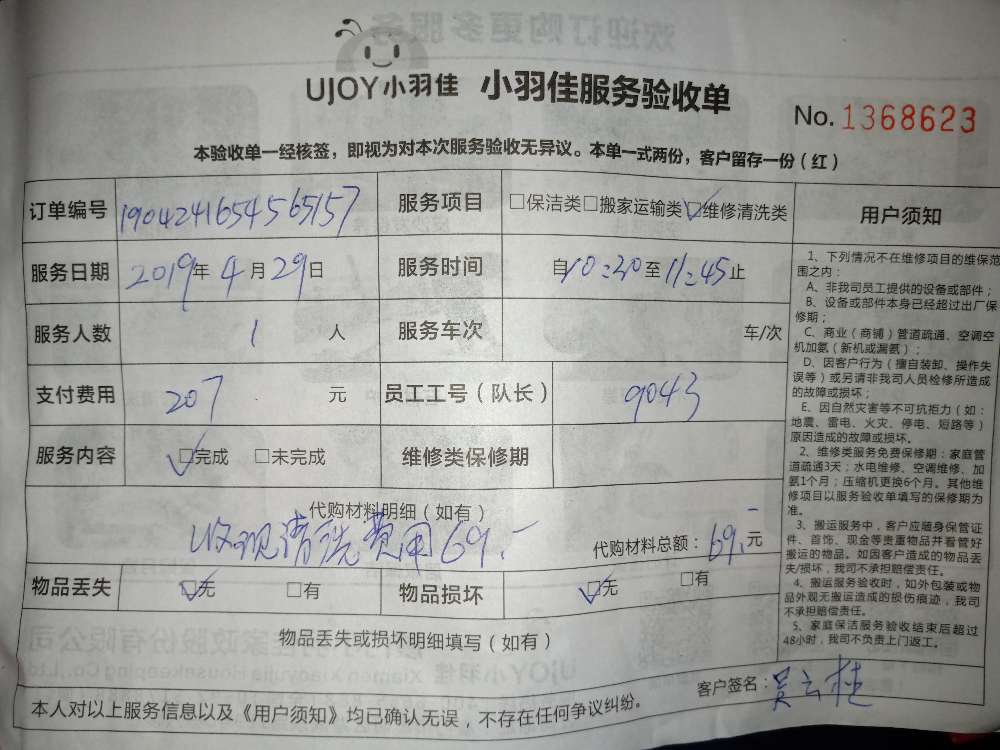 UJOY小羽佳 小羽佳服务验收单
No. 1368623
本验收单一经核签，即视为对本次服务验收无异议。本单一式两份，客户留存一份（红）
订单编号 190424165456​5157 服务项目 □保洁类□搬家运输类☑维修清洗类
服务日期 2019年4月29日 服务时间 自10:30至11:45止
服务人数 1 人 服务车次 车/次
支付费用 207 元 员工工号（队长） 9043
服务内容 ☑完成 □未完成 维修类保修期
代购材料明细（如有）
收现清洗费用69.- 代购材料总额：69.-元
物品丢失 ☑无 □有 物品损坏 ☑无 □有
物品丢失或损坏明细填写（如有）
客户签名：吴云桂
本人对以上服务信息以及《用户须知》均已确认无误，不存在任何争议纠纷。
用户须知
1、下列情况不在维修项目的维保范
围之内：
A、非我司员工提供的设备或部件；
B、设备或部件本身已经超过出厂保
修期；
C、商业（商铺）管道疏通、空调空
机加氨（新机或漏氨）；
D、因客户行为（擅自装卸、操作失
误等）或另请非我司人员检修所造成
的故障或损坏；
E、因自然灾害等不可抗拒力（如：
地震、雷电、火灾、停电、短路等）
原因造成的故障或损坏。
2、维修类服务免费保修期：家庭管
道疏通3天；水电维修、空调维修、加
氨1个月；压缩机更换6个月。其他维
修项目以服务验收单填写的保修期为
准。
3、搬运服务中，客户应随身保管证
件、首饰、现金等贵重物品并看管好
搬运的物品。如因客户造成的物品丢
失/损坏，我司不承担赔偿责任。
4、搬运服务验收时，如外包装或物
品外观无搬运造成的损伤痕迹，我司
不承担赔偿责任。
5、家庭保洁服务验收结束后超过
48小时，我司不负责上门返工。